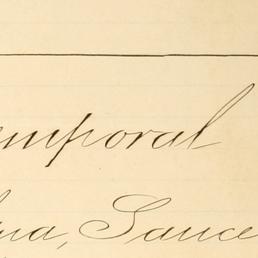 emporal
na, Sauce